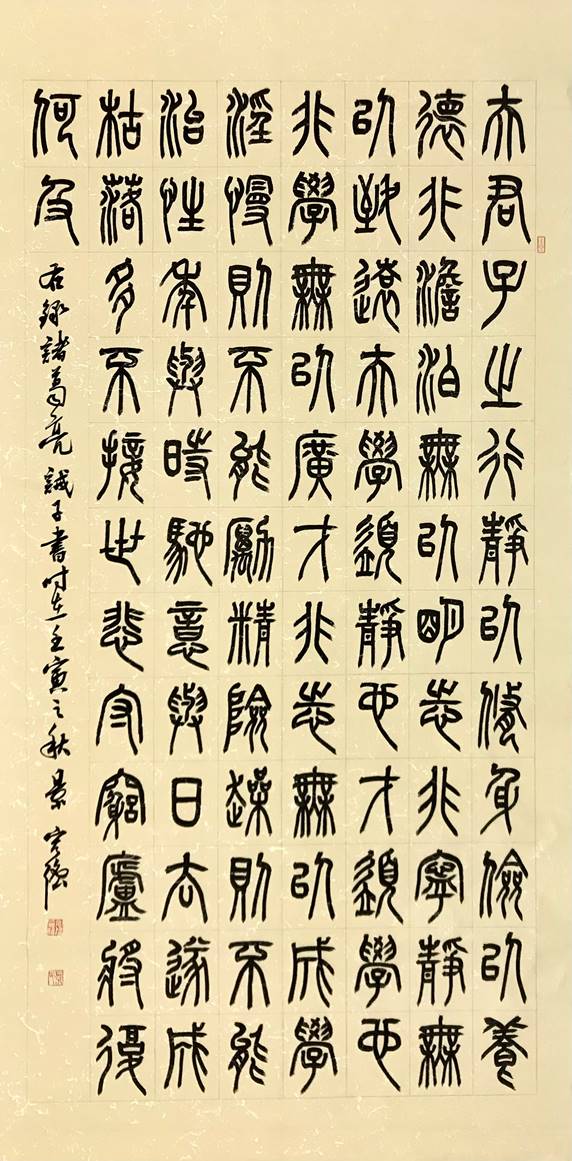 夫君子之行靜以修身儉以養
德非澹泊無以明志非寧靜無
以致遠夫學須靜也才須學也
非學無以廣才非志無以成學
淫慢則不能勵精險躁則不能
治性年與時馳意與日去遂成
枯落多不接世悲守窮廬將復
何及
右錄諸葛亮誡子書时在壬寅之秋景